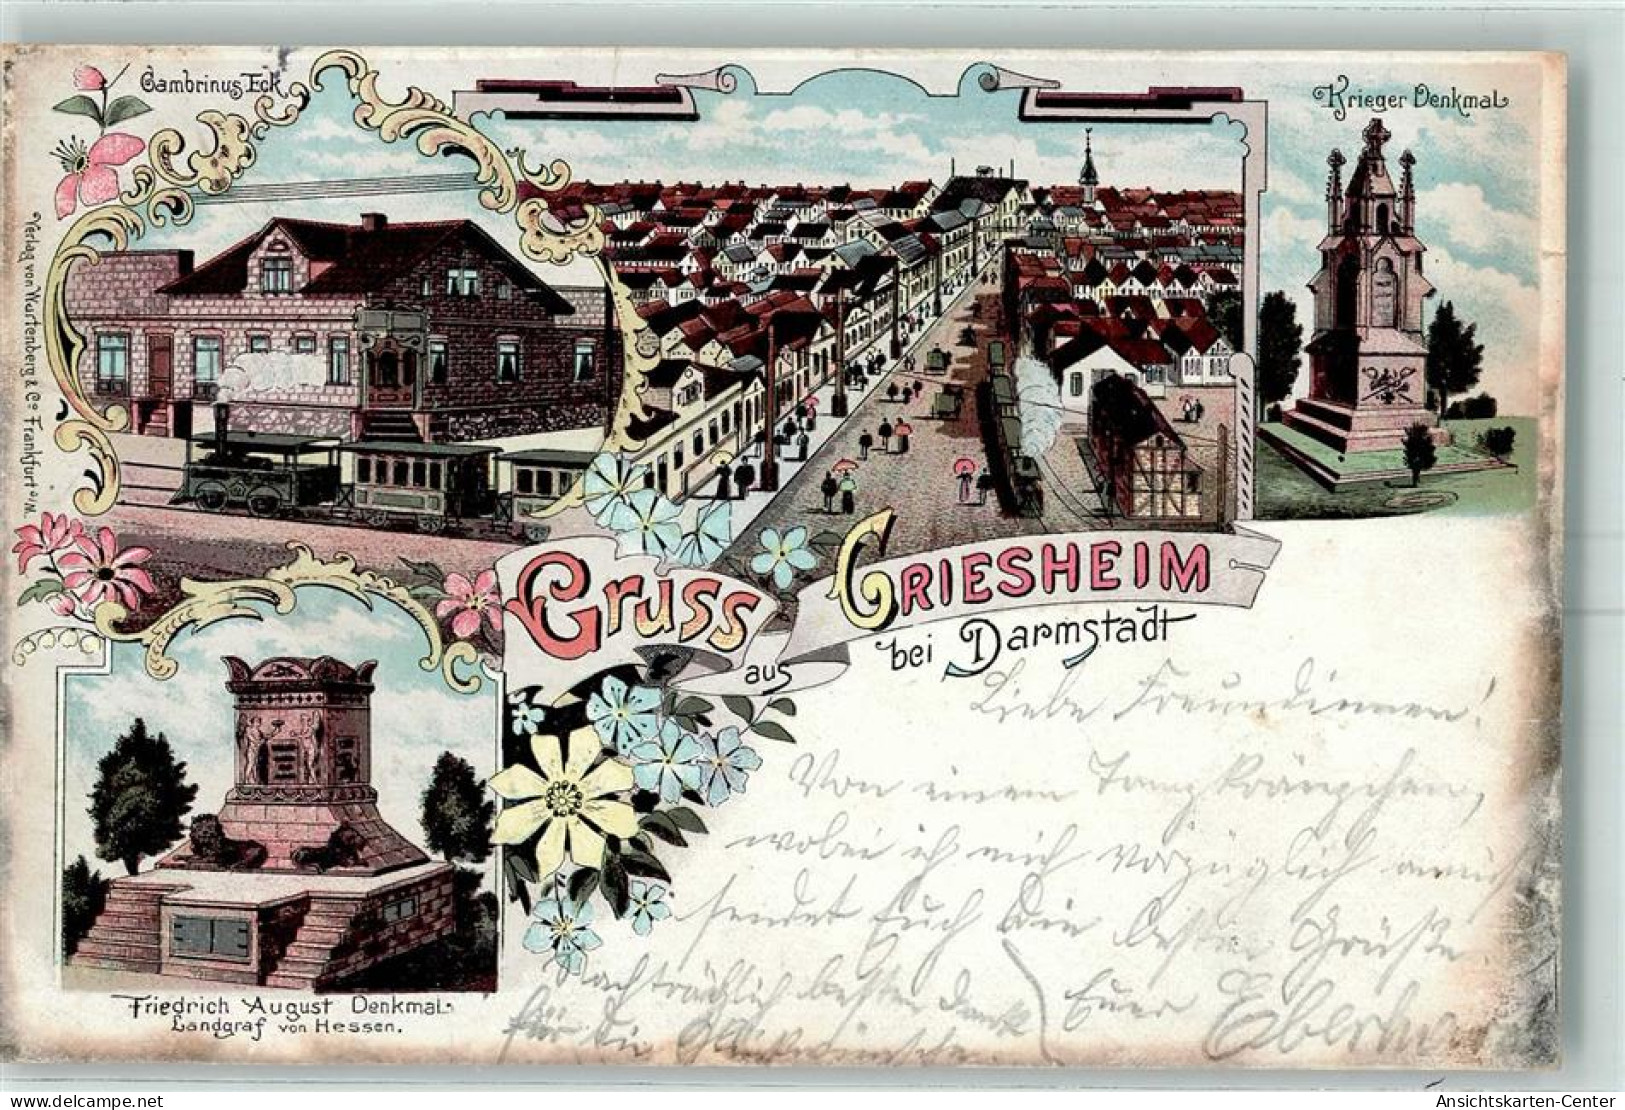 Gambrinus Eck
Krieger Denkmal
Verlag von Wurtenberg & Co Frankfurt a/M.
Gruss
aus
GRIESHEIM
bei Darmstadt
Friedrich August Denkmal
Landgraf von Hessen.
Liebe Freundinnen!
Von einem Tanzkränzchen,
wobei ich mich vorzüglich amüs
sendet Euch die besten Grüße
Euer Eberhard
Nachträglich besten Dank
für die Glückwünsche.
www.oldthing.de
Ansichtskarten-Center